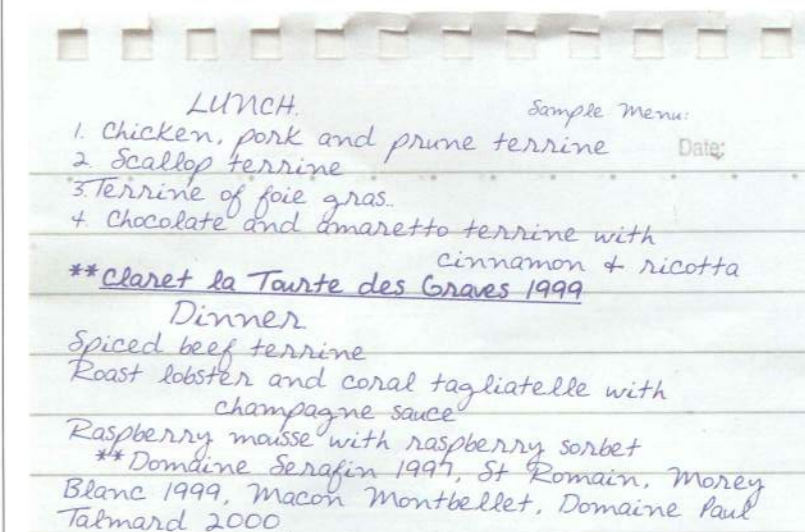 LUNCH.
Sample Menu:
1. Chicken, pork and prune terrine
Date:
2. Scallop terrine
3. Terrine of foie gras..
4. Chocolate and amaretto terrine with
cinnamon & ricotta
**Claret la Tourte des Graves 1999
Dinner
Spiced beef terrine
Roast lobster and coral tagliatelle with
champagne sauce
Raspberry mousse with raspberry sorbet
**Domaine Serafin 1997, St Romain, Morey
Blanc 1999, Macon Montbellet, Domaine Paul
Talmard 2000